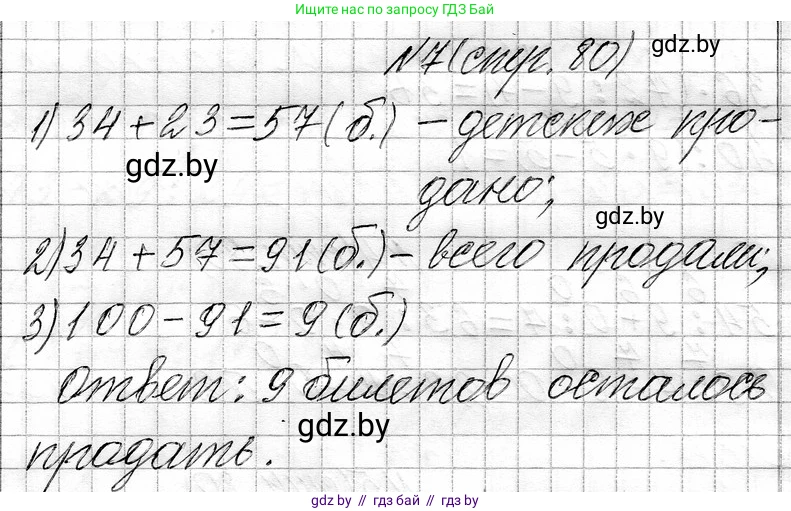 Ищите нас по запросу ГДЗ БАЙ
№7(стр. 80)
gdz.by
1) 34+23=57(б.) – детских про-
gdz.by
дано;
gdz.by
2) 34+57=91(б.) – всего продали;
3) 100–91=9(б.)
Ответ: 9 билетов осталось
gdz.by
продать.
gdz.by // гдз бай // gdz.by